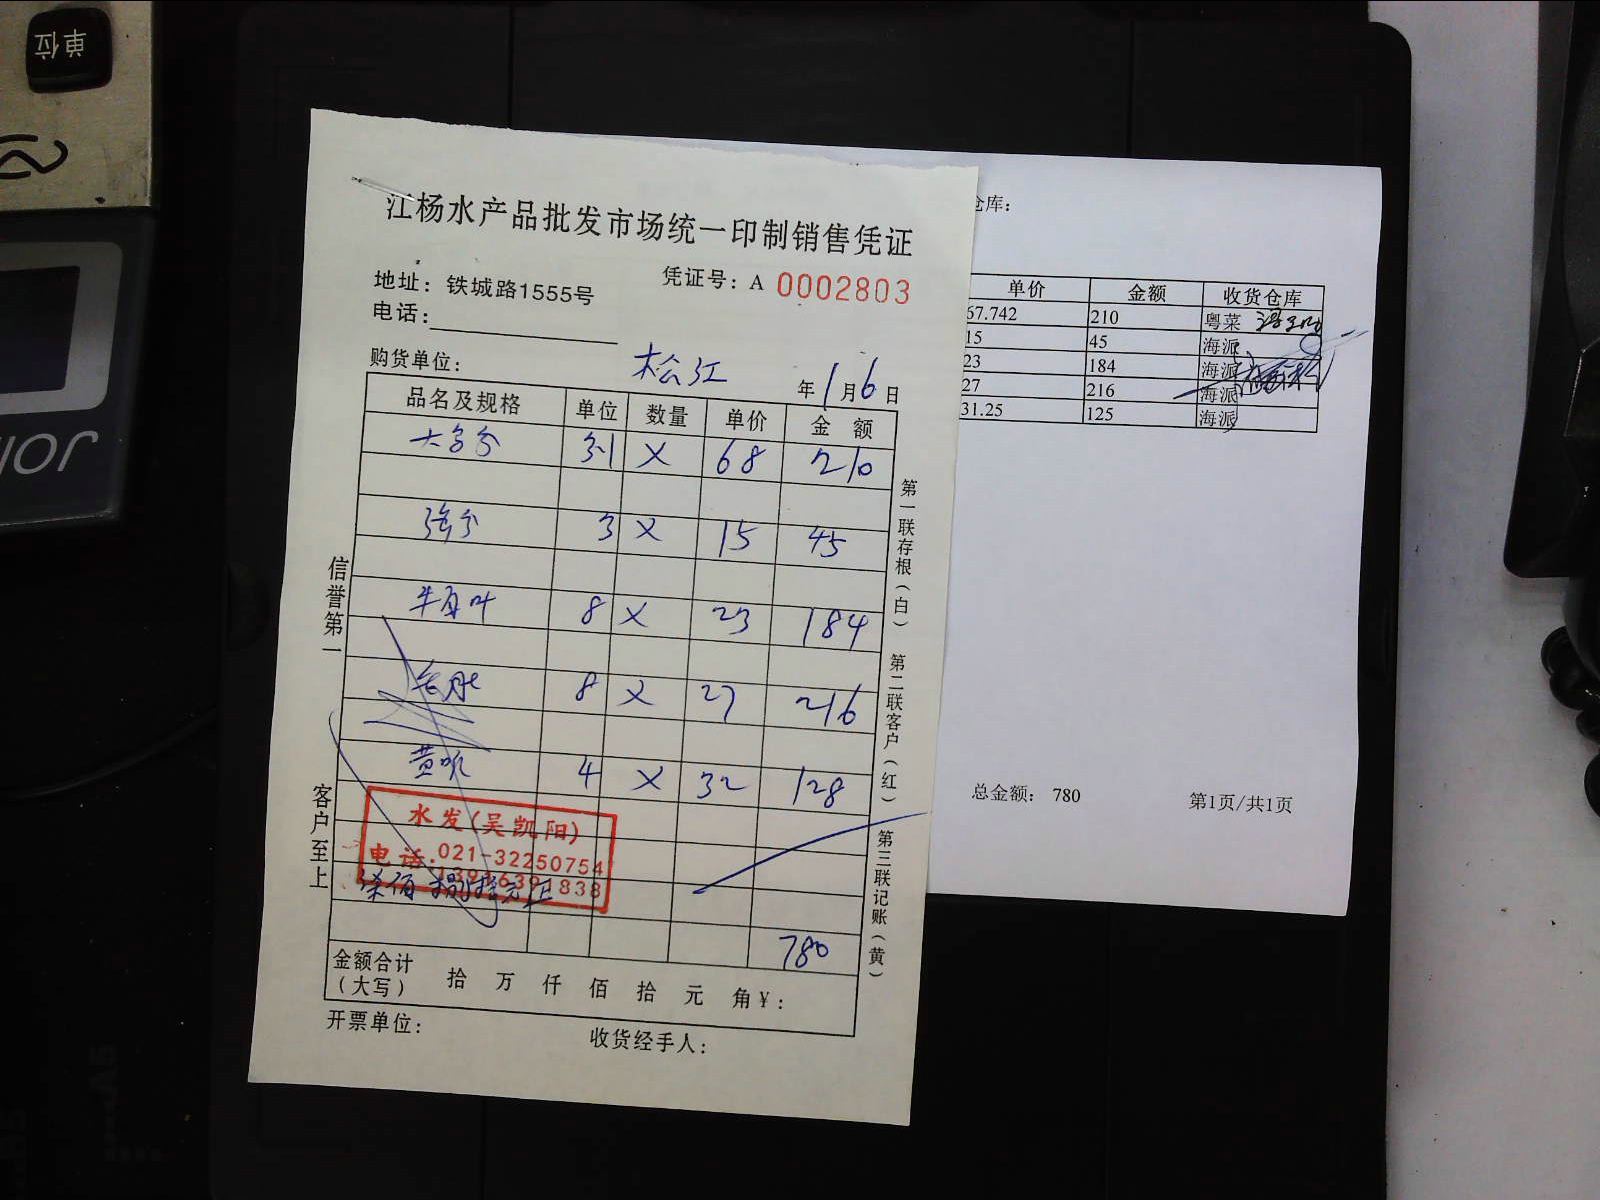 单位
江杨水产品批发市场统一印制销售凭证
地址：铁城路1555号
凭证号：A 0002803
电话：
购货单位： 松江 年 1 月 6 日
品名及规格 单位 数量 单价 金 额
3.1 X 68 210
3 X 15 45
牛百叶 8 X 23 184
8 X 27 216
黄 4 X 32 128
水发(吴凯阳)
电话.021-32250754
柒佰捌拾元正
780
金额合计（大写） 拾 万 仟 佰 拾 元 角￥：
开票单位： 收货经手人：
信誉第一
客户至上
第一联存根（白） 第二联客户（红） 第三联记账（黄）
仓库：
单价 金额 收货仓库
67.742 210 粤菜
15 45 海派
23 184 海派
27 216 海派
31.25 125 海派
总金额： 780 第1页/共1页